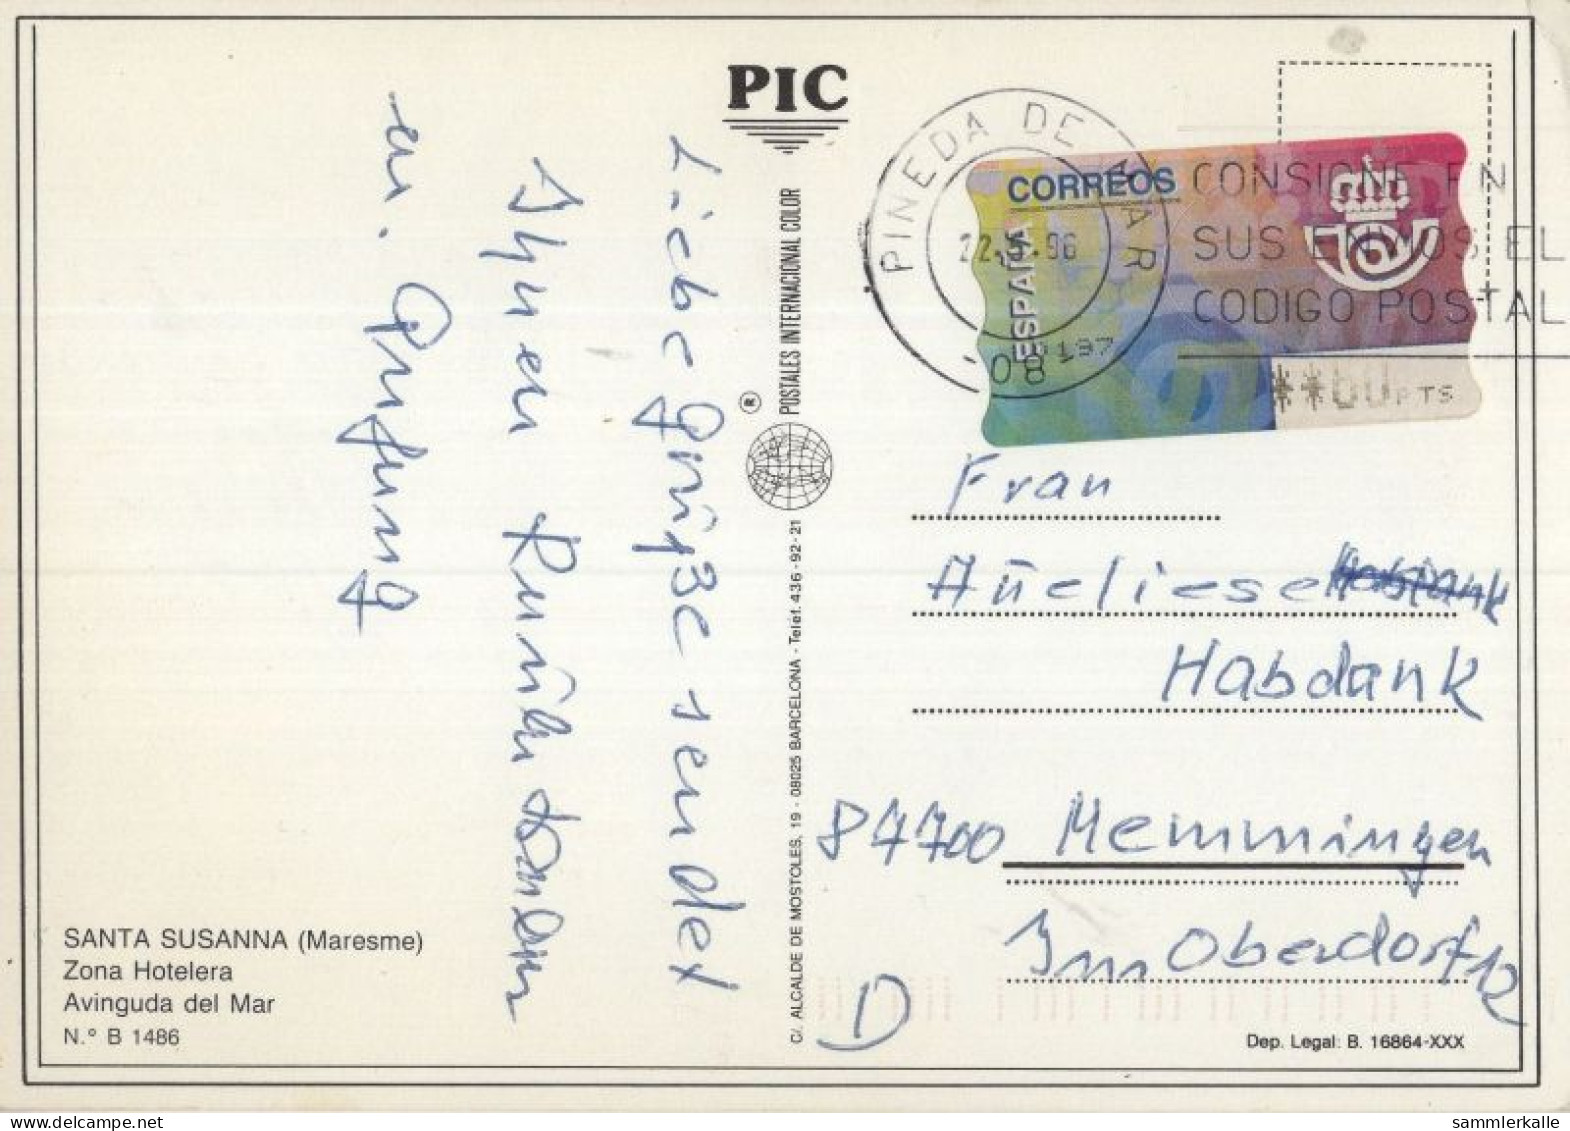 PIC
POSTALES INTERNACIONAL COLOR
®
C/. ALCALDE DE MOSTOLES, 19 - 08025 BARCELONA - Teléf. 436-92-21
PINEDA DE MAR
22. .96
08
CORREOS
ESPAÑA
**60PTS
CONSIGNE EN
SUS ENVIOS EL
CODIGO POSTAL
Liebe Grüße sendet
Ihnen
Frau
Aneliese
Habdank
87700 Memmingen
Im Oberdorf 12
D
SANTA SUSANNA (Maresme)
Zona Hotelera
Avinguda del Mar
N.° B 1486
Dep. Legal: B. 16864-XXX
sammlerkalle